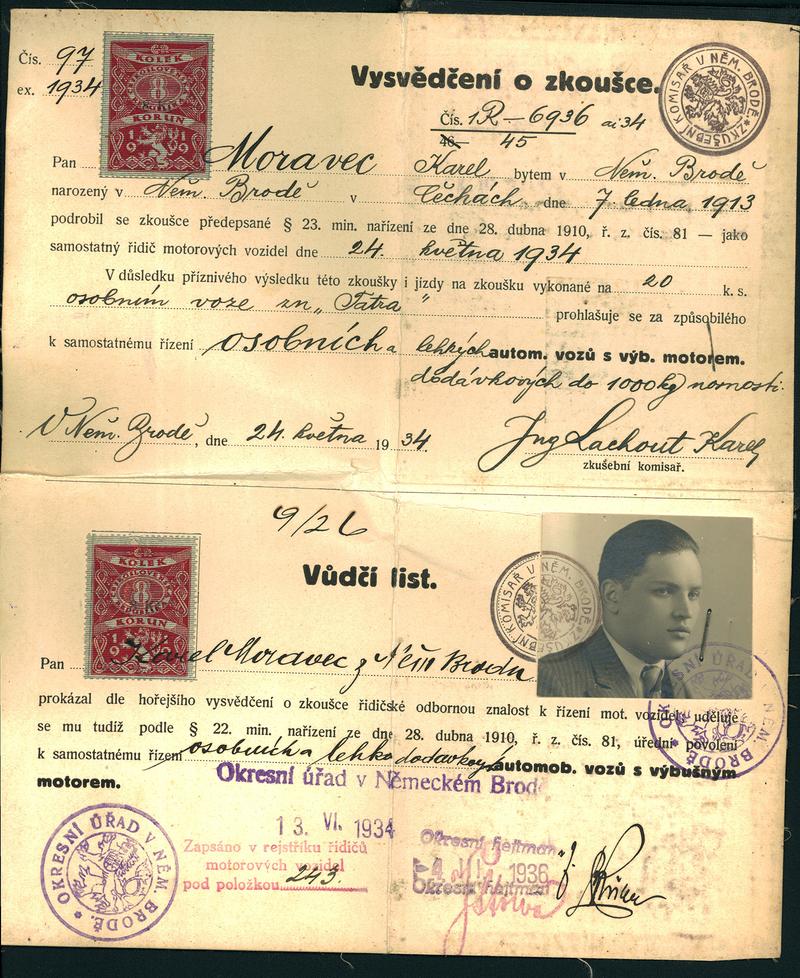 Čís. 97
ex. 1934
KOLEK
8
KORUN
1919
Vysvědčení o zkoušce.
ZKUŠEBNÍ KOMISAŘ V NĚM. BRODĚ
Čís. 1R – 6936 ai 34
46- 45
Pan Moravec Karel bytem v Něm. Brodě
narozený v Něm. Brodě v Čechách dne 7. ledna 1913
podrobil se zkoušce předepsané § 23. min. nařízení ze dne 28. dubna 1910, ř. z. čís. 81 — jako
samostatný řidič motorových vozidel dne 24. května 1934
V důsledku příznivého výsledku této zkoušky i jízdy na zkoušku vykonané na 20 k. s.
osobním voze zn „Tatra" prohlašuje se za způsobilého
k samostatnému řízení osobních a lehkých autom. vozů s výb. motorem.
dodávkových do 1000 kg nosnosti.
V Něm. Brodě, dne 24. května 1934.
Ing Lachout Karel
zkušební komisař.
9/26
KOLEK
8
KORUN
1919
Vůdčí list.
ZKUŠEBNÍ KOMISAŘ V NĚM. BRODĚ
Pan Karel Moravec z Něm Brodu
OKRESNÍ ÚŘAD V NĚM. BRODĚ
prokázal dle hořejšího vysvědčení o zkoušce řidičské odbornou znalost k řízení mot. vozidel, uděluje
se mu tudíž podle § 22. min. nařízení ze dne 28. dubna 1910, ř. z. čís. 81, úřední povolení
k samostatnému řízení osobních a lehko dodávkových automob. vozů s výbušným
motorem.
Okresní úřad v Německém Brodě
OKRESNÍ ÚŘAD V NĚM. BRODĚ
13. VI. 1934
Zapsáno v rejstříku řidičů
motorových vozidel
pod položkou 243
Okresní hejtman
1936
Okresní hejtman